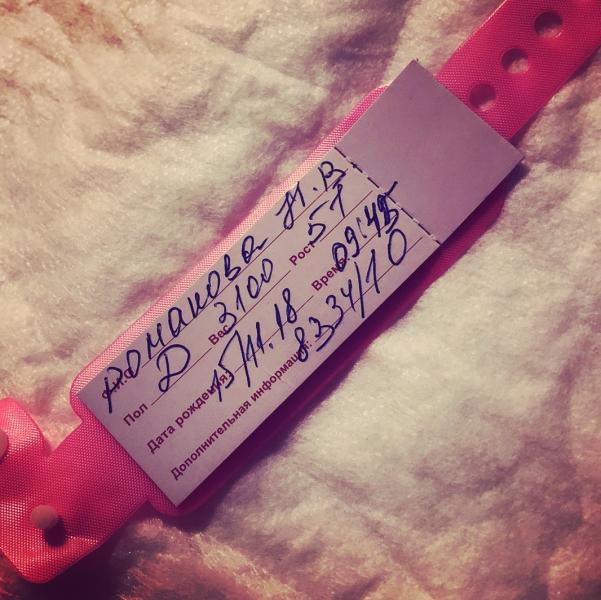 Ф.И.О. Романова Н.В
Пол Д Вес 3100 Рост 51
Дата рождения: 15/11.18 Время 09:45
Дополнительная информация: 8334/10